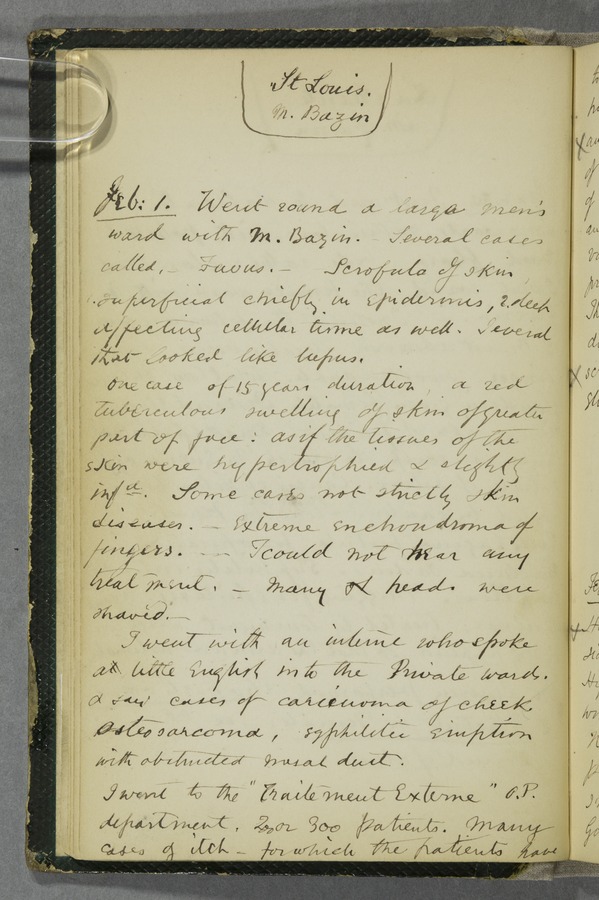 St Louis.
M. Bazin
Feb: 1. Went round a large men's
ward with M. Bazin. - Several cases
called, - Favus. - Scrofula of skin,
1. superficial chiefly in epidermis, 2 deep
affecting cellular tissue as well. Several
that looked like lupus.
One case of 15 years duration, a red
tuberculous swelling of skin of greater
part of face: as if the tissues of the
skin were hypertrophied & slightly
infd. Some cases not strictly skin
diseases. - Extreme enchondroma of
fingers. - - I could not hear any
treatment. - Many heads were
shaved. -
I went with an interne who spoke
a little English into the Private wards.
& saw cases of carcinoma of cheek
osteosarcoma, syphilitic eruption
with obstructed nasal duct.
I went to the "Traitement Externe" O.P.
department. 2 or 300 patients. Many
cases of itch - for which the patients have